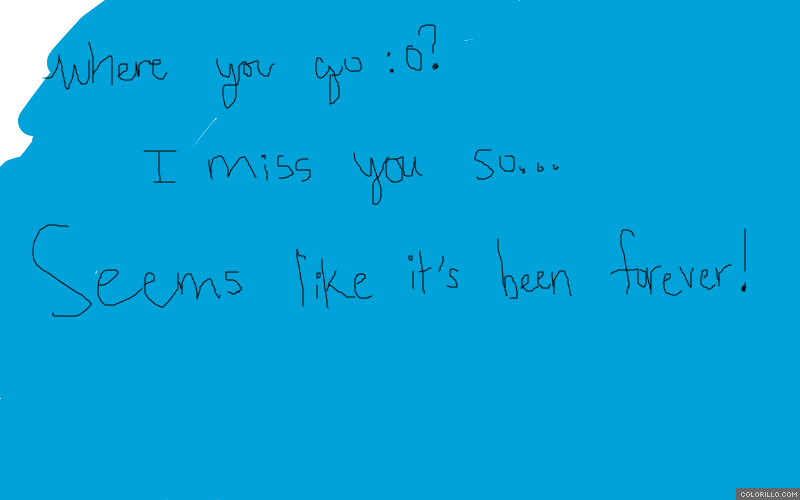 Where you go :o?
I miss you so...
Seems like it's been forever!
COLORILLO.COM